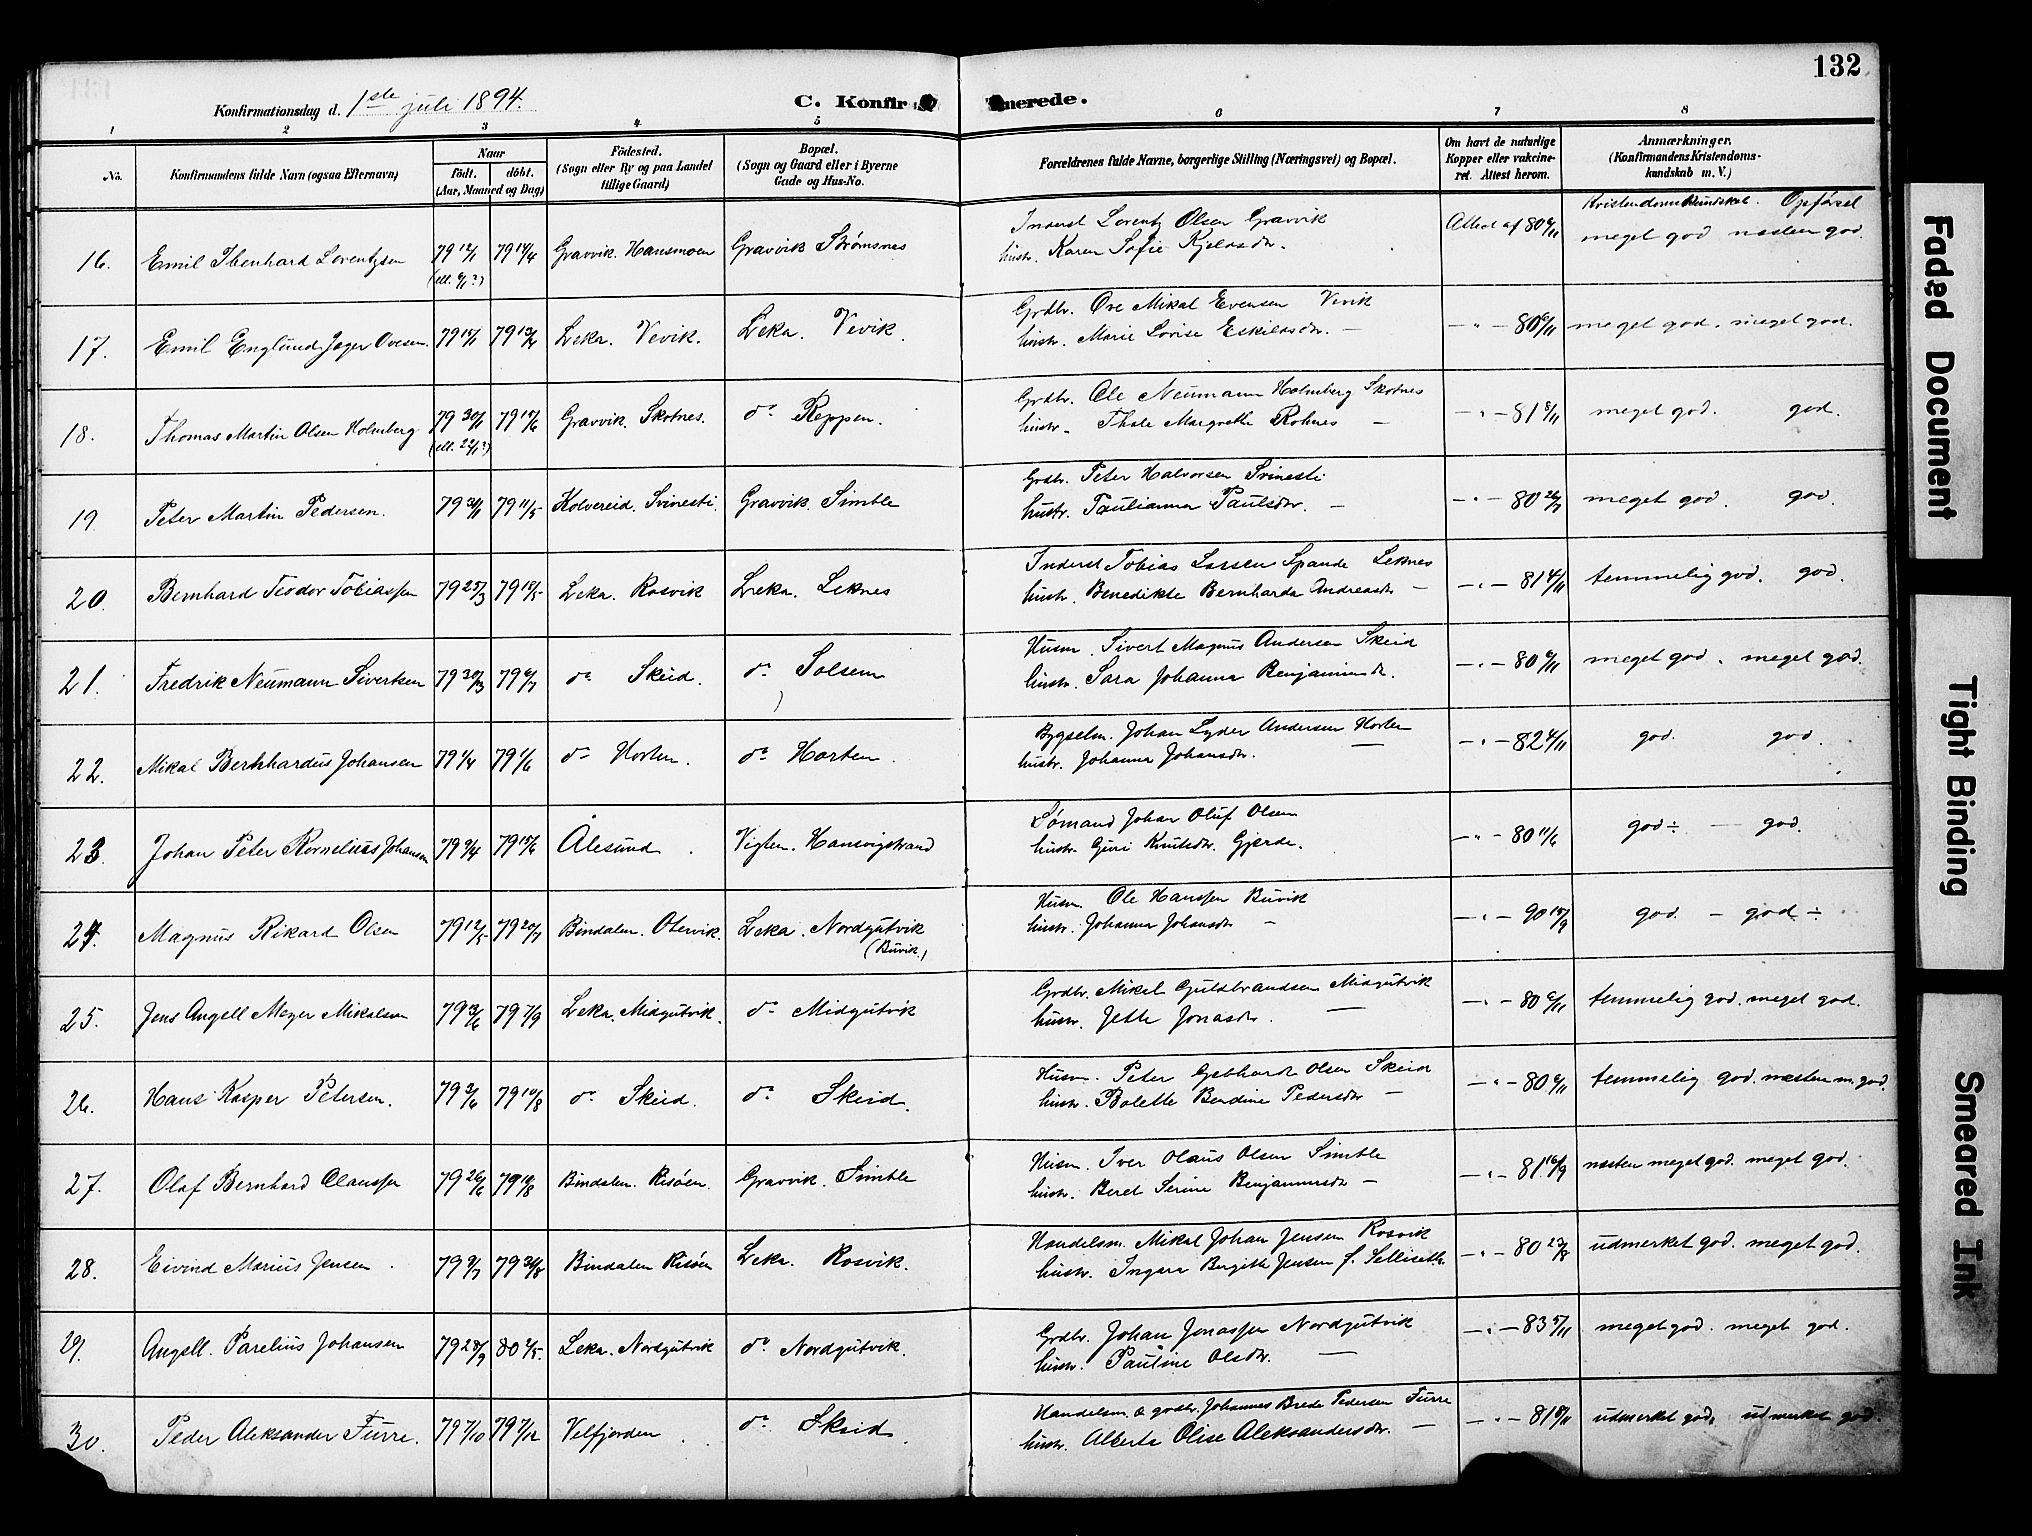 132
Konfirmationsdag d. 1ste juli 1894. C. Konfirmerede.
1 2 3 4 5 6 7 8
No. Konfirmandens fulde Navn (ogsaa Efternavn) Naar födt. döbt. (Aar, Maaned og Dag) Födested. (Sogn eller By og paa Landet tillige Gaard) Bopæl. (Sogn og Gaard eller i Byerne Gade og Hus-No. Forældrenes fulde Navne, borgerlige Stilling (Næringsvei) og Bopæl. Om havt de naturlige Kopper eller vakcineret. Attest herom. Anmærkninger. (Konfirmandens Kristendomskundskab m. V.)
Kristendomskundskab. Opførsel
16. Emil Ibenhard Lorentzsen 79 12/1 79 14/4 Gravvik. Hansmoen Gravvik Strømsnes Inderst Lorentz Olsen Gravvik Attest af 80 6/11 meget god næsten god
hustr. Karen Sofie Kjelsdr.
17. Emil Englund Jager Ovesen. 79 15/1 79 13/4 Leka. Vevik. Leka. Vevik. Grdbr. Ove Mikal Evensen Vevik — " — 80 6/11 meget god. meget god.
hustr. Marie Lovise Eskildsdr. —
18. Thomas Martin Olsen Holmberg 79 30/1 (ell. 22/1?) 79 15/6 Gravvik. Skotnes. do Reppen. Grdbr. Ole Neumann Holmberg Skotnes — " — 81 8/11 meget god. god.
hustr. Thale Margrethe Rohnes —
19. Peter Martin Pedersen. 79 31/1 79 11/5 Kolvereid. Svinesti. Gravvik Simble Grdbr. Peter Halvorsen Svinesti — " — 80 26/7 meget god. god.
hustr. Paulianna Paulsdr. —
20. Bernhard Teodor Tobiassen 79 25/3 79 18/5 Leka. Rosvik Leka. Leknes Inderst Tobias Larsen Spande Leknes — " — 81 4/11 temmelig god. god.
hustr. Benedikte Bernharda Andreasdr —
21. Fredrik Neumann Sivertsen 79 30/3 79 6/7 do Skeid. do Solsem Husm. Sivert Magnus Andersen Skeid — " — 80 6/11 meget god. meget god.
hustr. Sara Johanna Benjaminsdr.
22. Mikal Bernhardus Johansen 79 1/4 79 1/6 do Horten. do Horten. Bygselm. Johan Lyder Andersen Horten — " — 82 4/11 god. god.
hustr. Johanna Johansdr. —
23. Johan Peter Kornelius Johansen 79 9/4 79 15/6 Ålesund. Vigten. Hansvigstrand Sømand Johan Oluf Olsen — " — 80 11/6 god ÷ — god.
hustr. Guri Knutsdr. Gjerde.
24. Magnus Rikard Olsen 79 12/5 79 20/7 Bindalen. Otervik. Leka. Nordgutvik (Buvik.) Husm. Ole Hanssen Buvik — " — 90 15/9 god. — god ÷
hustr. Johanna Johansdr —
25. Jens Angell Meyer Mikalsen 79 3/6 79 7/9 Leka. Midgutvik. do Midgutvik Grdbr. Mikal Guldbrandsen Midgutvik — " — 80 6/11 temmelig god. meget god.
hustr. Jette Jonasdr. —
26. Hans Kasper Petersen. 79 3/6 79 10/8 do Skeid. do Skeid. Husm. Peter Gebhardt Olsen Skeid — " — 80 6/11 temmelig god. næsten m. god.
hustr. Bolette Berdine Pedersdr —
27. Olaf Bernhard Olaussen 79 26/6 79 10/8 Bindalen. Risöen. Gravvik. Simble Husm. Iver Olaus Olsen Simble — " — 81 16/9 næsten meget god. meget god.
hustr. Beret Serine Benjaminsdr —
28. Eivind Marius Jensen. 79 9/7 79 31/8 Bindalen Risöen Leka. Rosvik. Handelsm. Mikal Johan Jensen Rosvik — " — 80 23/8 udmerket god. meget god.
hustr. Ingara Birgitte Jensen f. Selliseth.
29. Angell. Parelius Johansen 79 28/9 80 2/5. Leka. Nordgutvik do Nordgutvik. Grdbr. Johan Jonassen Nordgutvik — " — 83 5/11 meget god. meget god.
hustr. Pauline Olsdr. —
30. Peder Aleksander Furre. 79 7/10 79 7/12 Velfjorden. do Skeid. Handelsm. & grdbr. Johannes Brede Pedersen Furre — " — 81 8/11 udmerket god. udmerket god.
hustr. Alberte Olise Aleksandersdr. —
Faded Document
Tight Binding
Smeared Ink